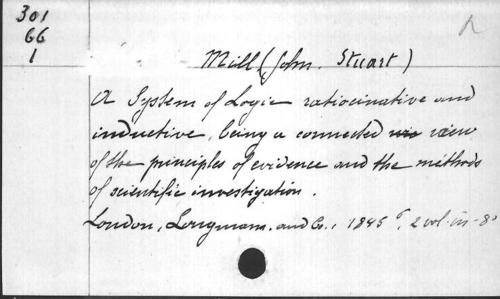 301
66
1
Mill (John Stuart)
A System of Logic ratiocinative and
inductive, being a connected view
of the principles of evidence and the methods
of scientific investigation.
London, Longmans. and Co., 1865, 2 vol. in-8°